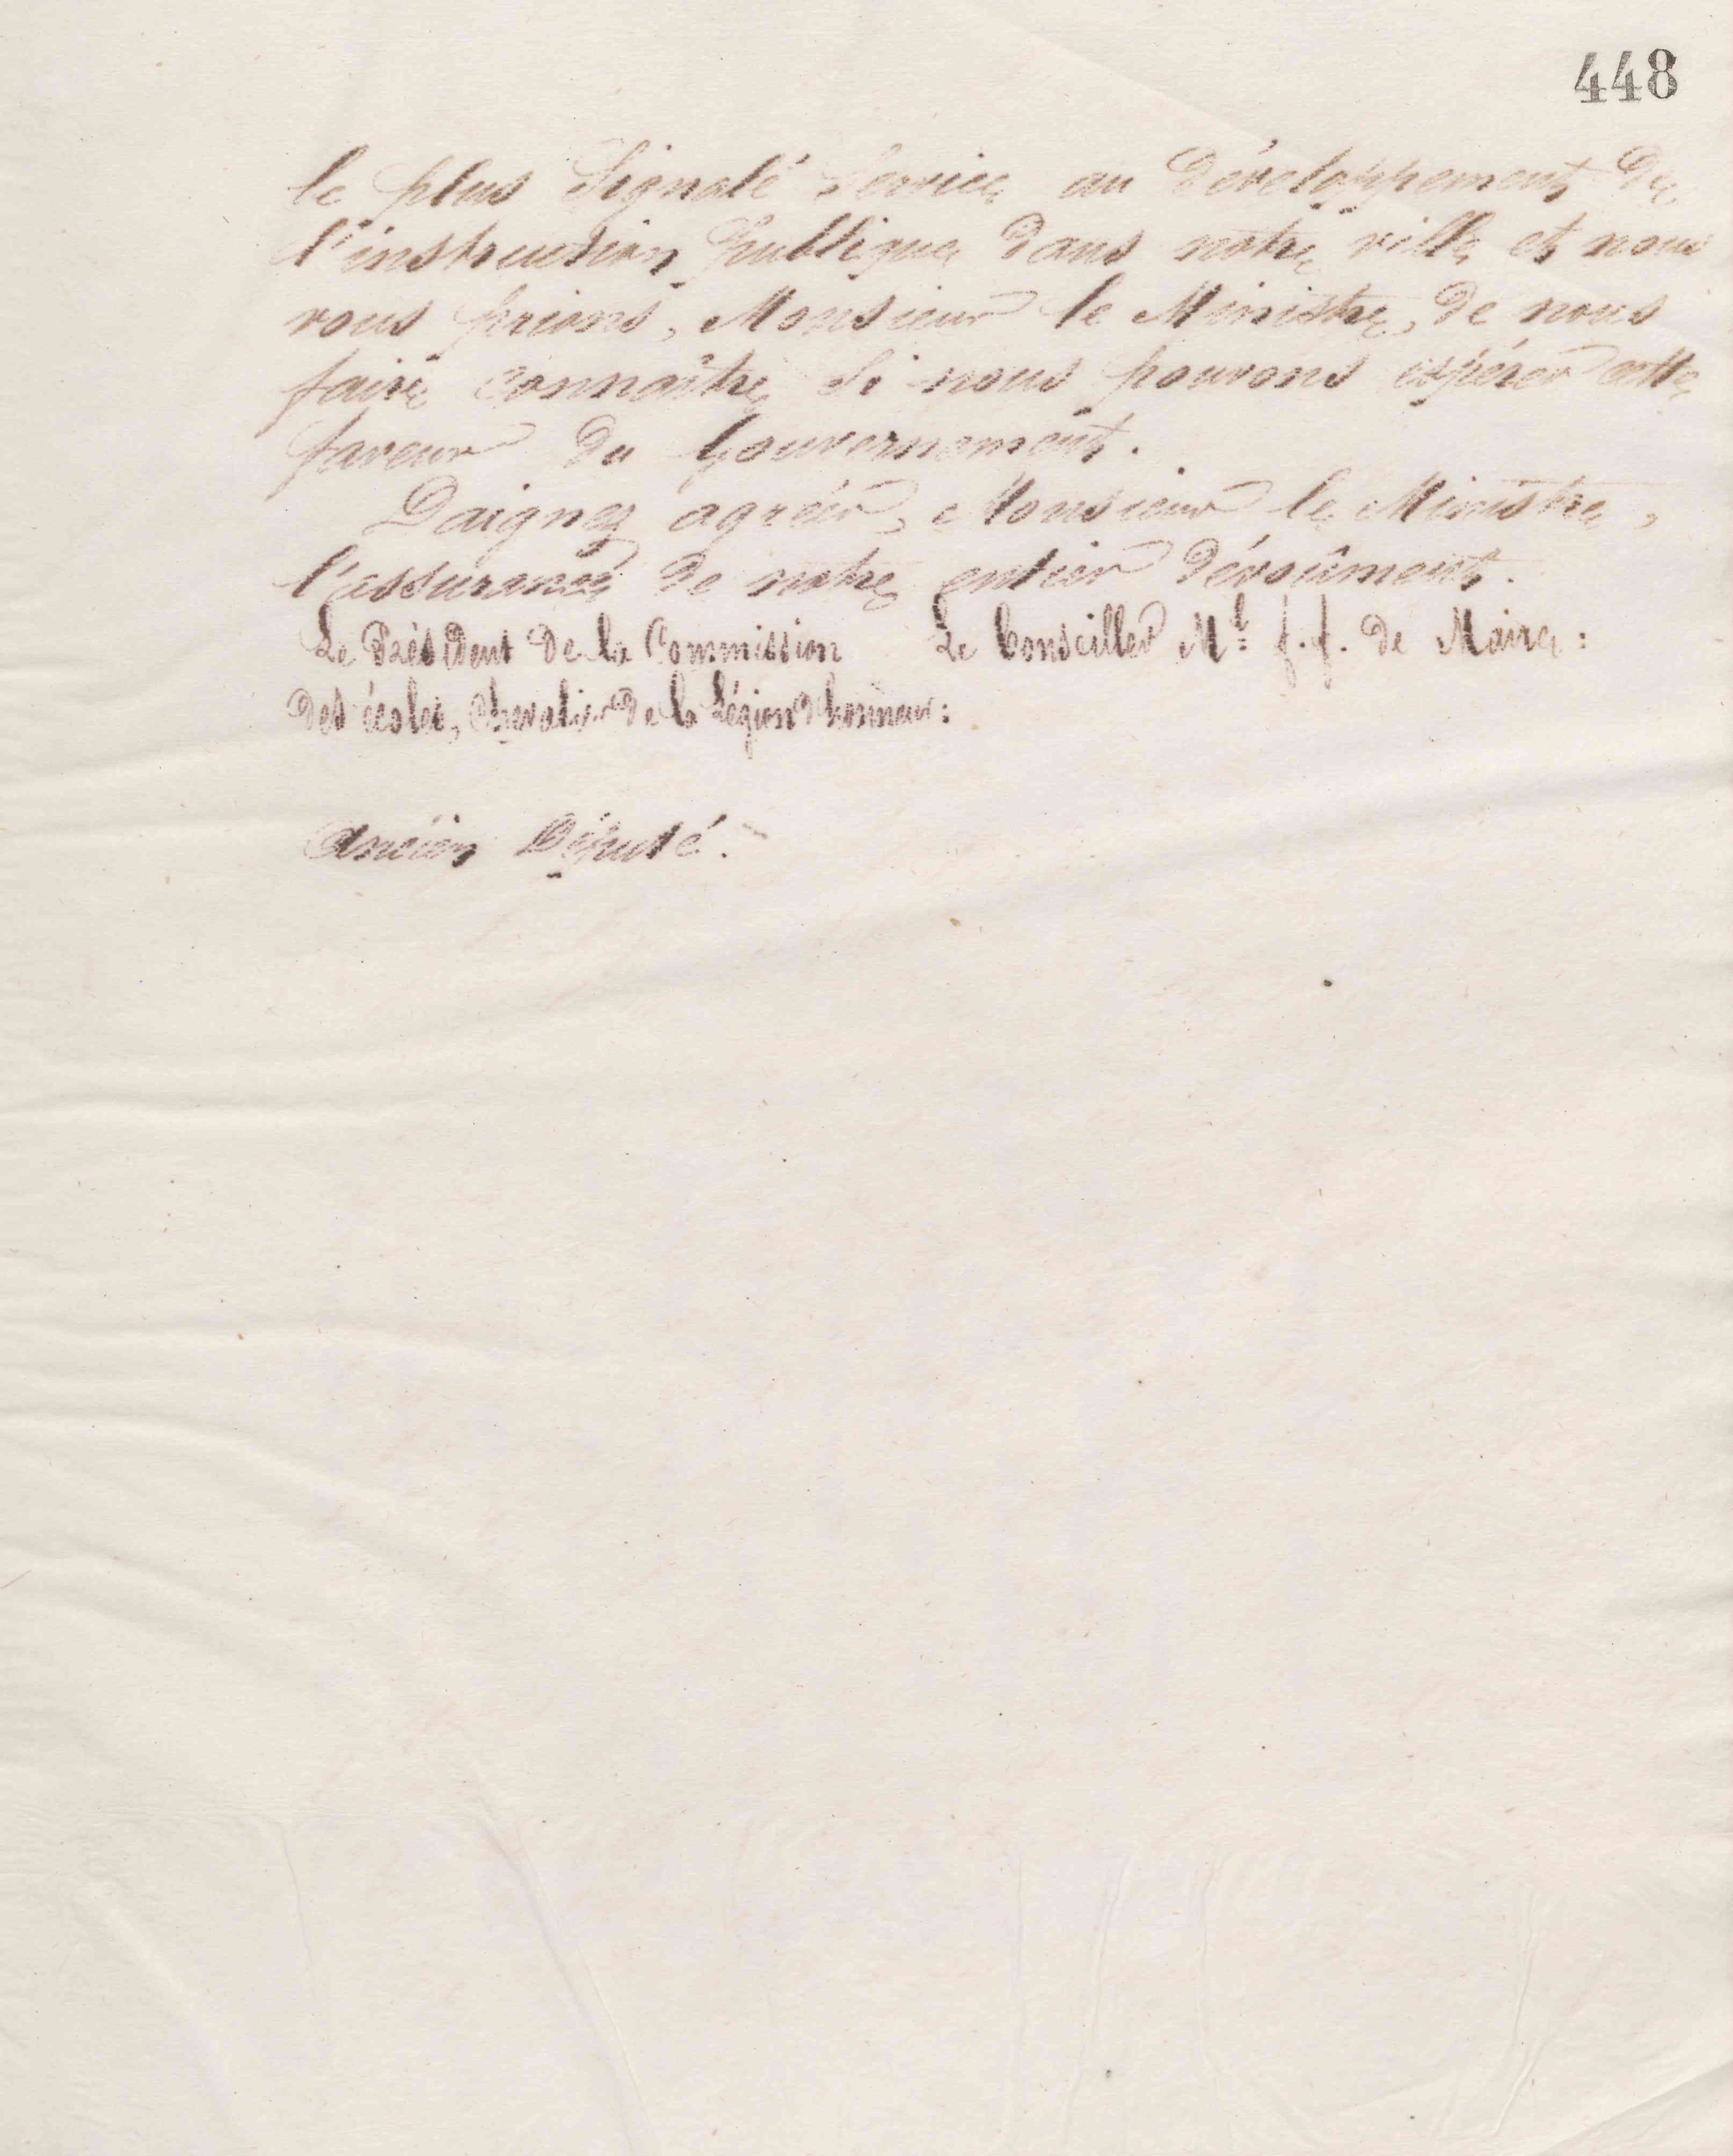 448
le plus signalé service au développement de
l'instruction publique dans notre ville et nous
vous prions, Monsieur le Ministre, de nous
faire connaître si nous pouvons espérer cette
faveur du Gouvernement.
Daignez agréer, Monsieur le Ministre,
l'assurance de notre entier dévoûment.
Le Président de la Commission Le Conseiller Ml f.f. de Maire:
des écoles, Chevalier de la Légion d'honneur:
Ancien Député.